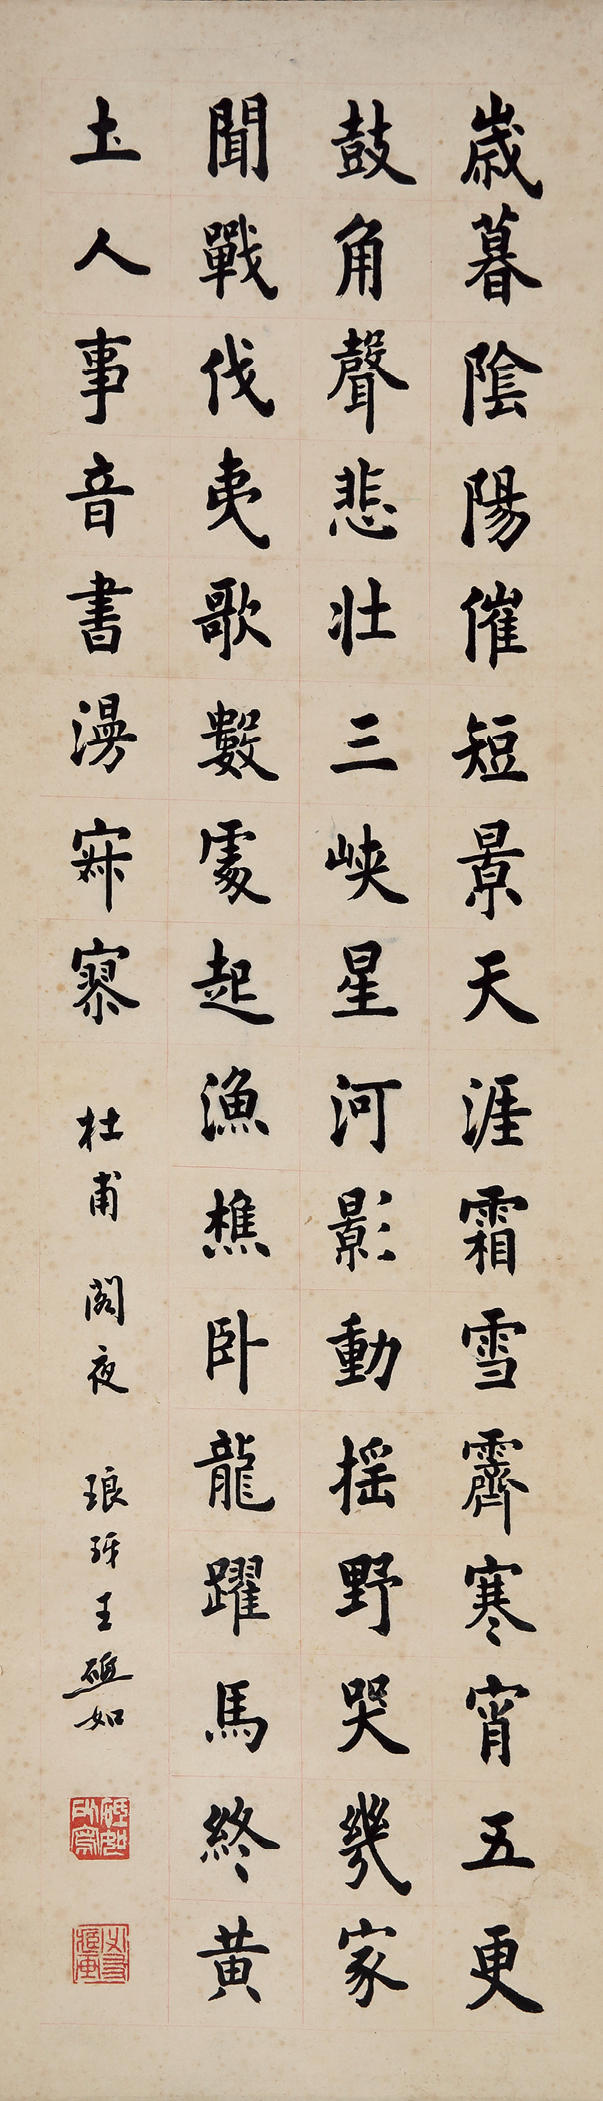 歲暮陰陽催短景天涯霜雪霽寒宵五更
鼓角聲悲壯三峽星河影動搖野哭幾家
聞戰伐夷歌數處起漁樵卧龍躍馬終黄
土人事音書漫寂寥 杜甫 閣夜 琅玡王如